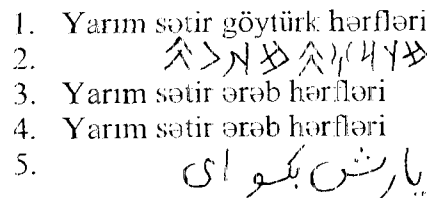 1. Yarım sətir göytürk hərfləri
2.
3. Yarım sətir ərəb hərfləri
4. Yarım sətir ərəb hərfləri
5. یارش بکو ای